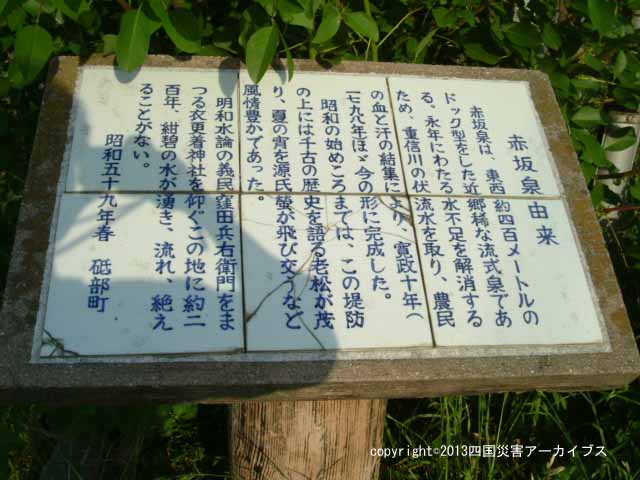 赤坂泉由来
赤坂泉は、東西約四百メートルの
ドック型をした近郷稀な流式泉であ
る、永年にわたる水不足を解消する
ため、重信川の伏流水を取り、農民
の血と汗の結集により、寛政十年(
一七九八年ほゞ今の形に完成した。
昭和の始めごろまでは、この堤防
の上には千古の歴史を語る老松が茂
り、夏の宵を源氏螢が飛び交うなど
風情豊かであった。
明和水論の義民窪田兵右衛門をま
つる衣更着神社を仰ぐこの地に約二
百年、紺碧の水が湧き、流れ、絶え
ることがない。
昭和五十九年春　砥部町
copyright©2013四国災害アーカイブス